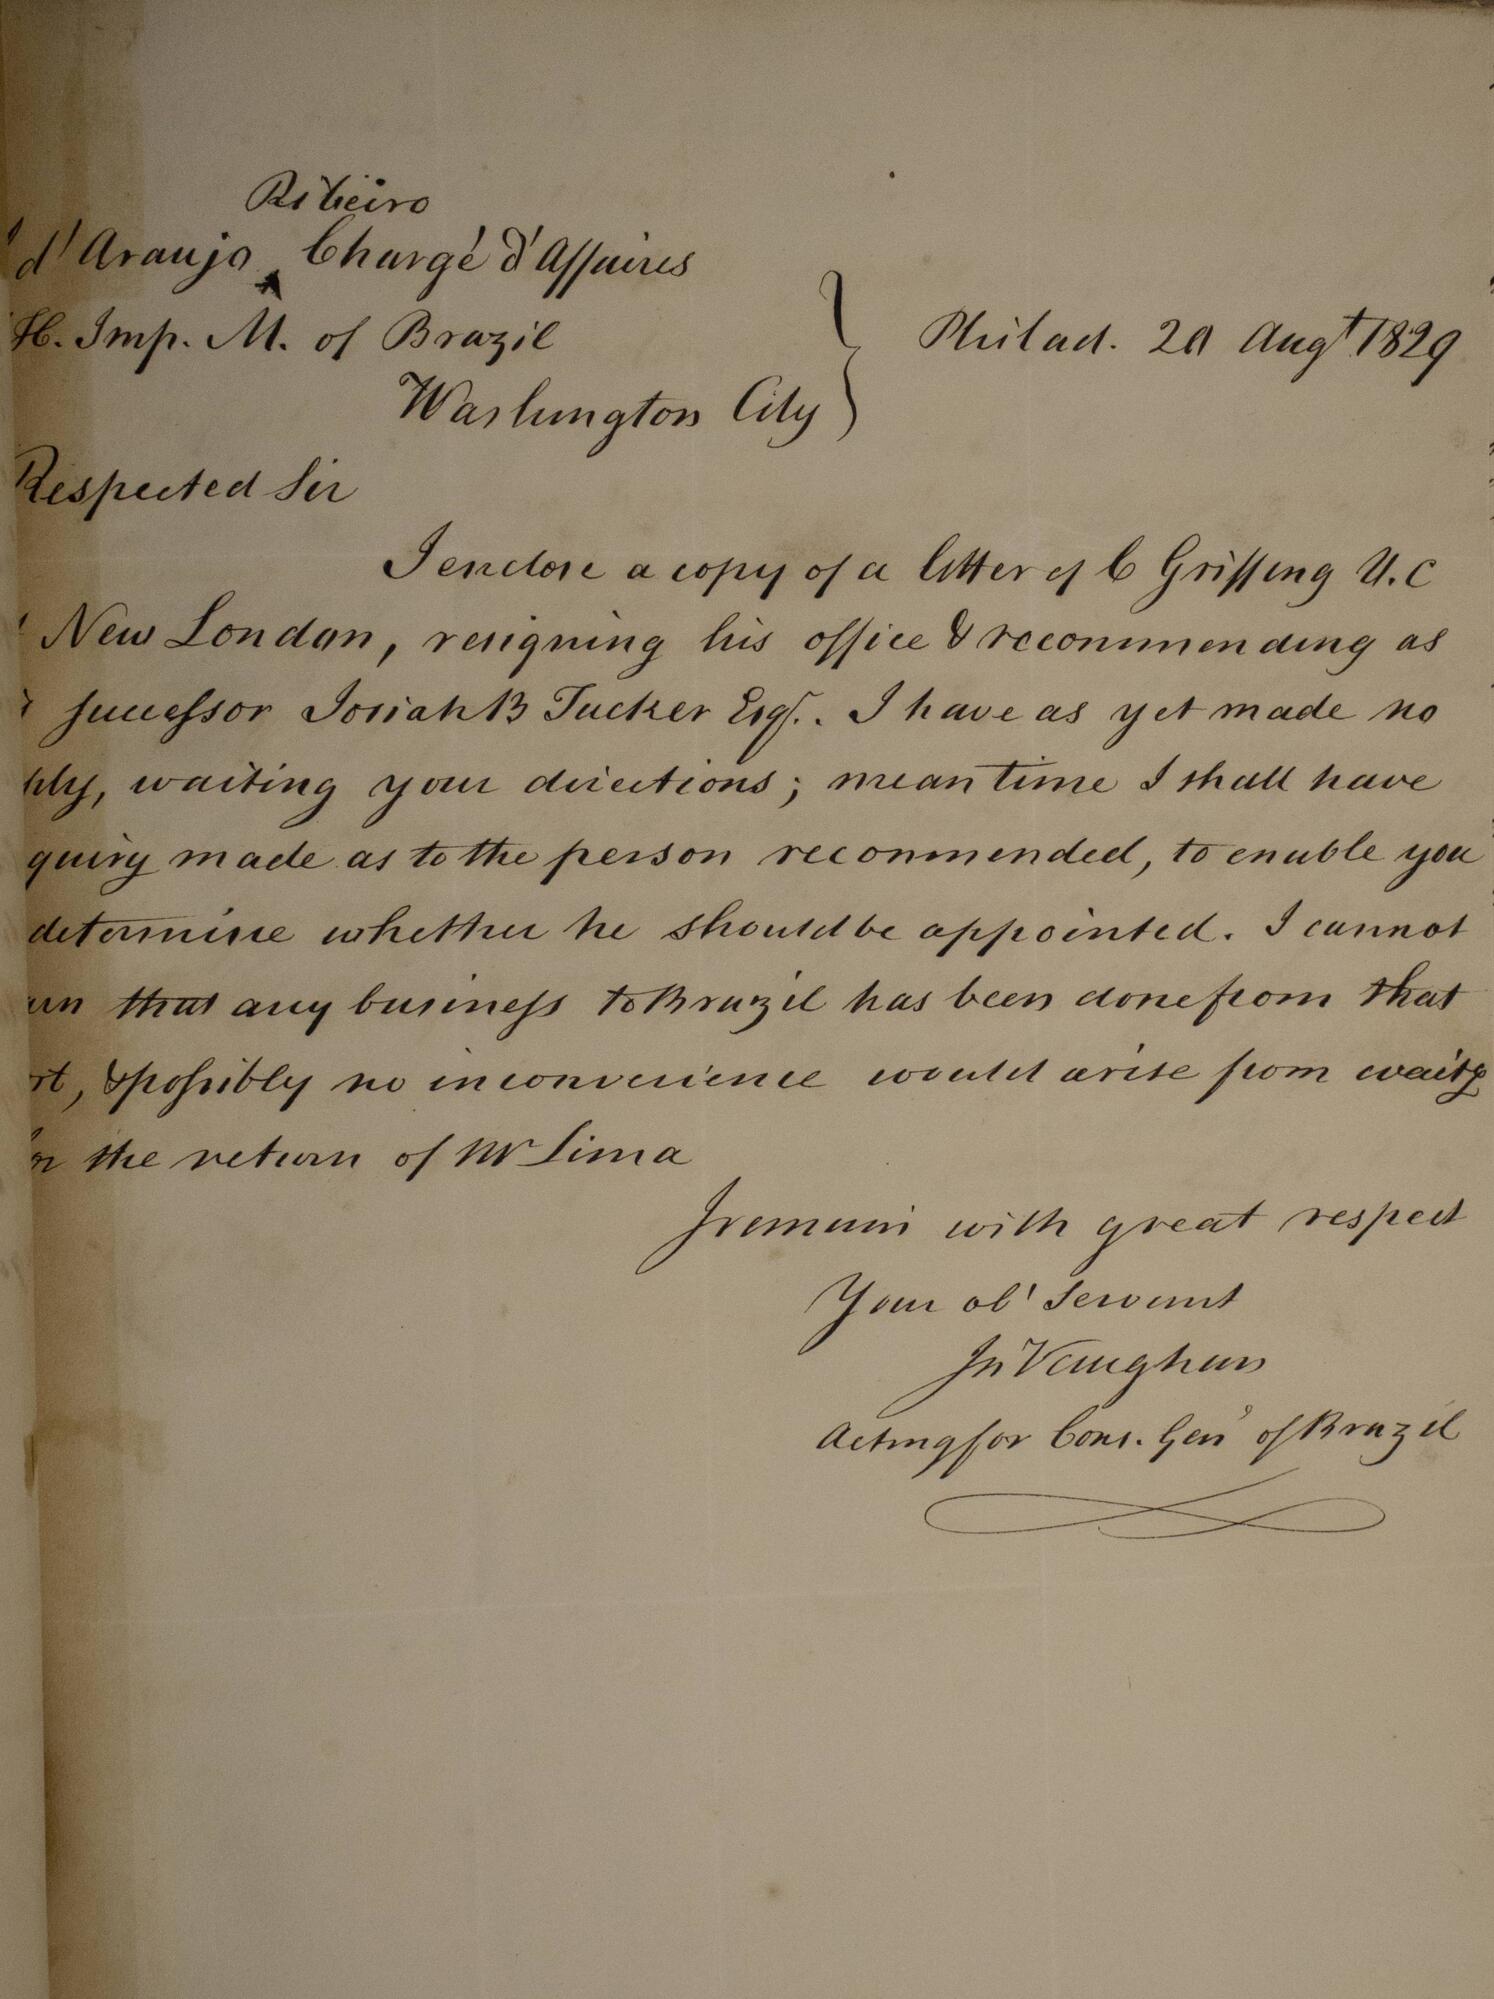 Ribeiro
d'Araujo Chargé d'Affaires
H. Imp. M. of Brazil
Washington City
Philad. 20 Augt 1829
Respected Sir
I enclose a copy of a letter of C Griffing U.C
New London, resigning his office & recommending as
successor Josiah B Tucker Esqr. I have as yet made no
ply, waiting your directions; mean time I shall have
quiry made as to the person recommended, to enable you
determine whether he should be appointed. I cannot
arn that any business to Brazil has been done from that
rt, & possibly no inconvenience would arise from waitg
the return of Mr Lima
I remain with great respect
Your obt Servant
Jn Vaughan
Acting for Cons. Genl of Brazil